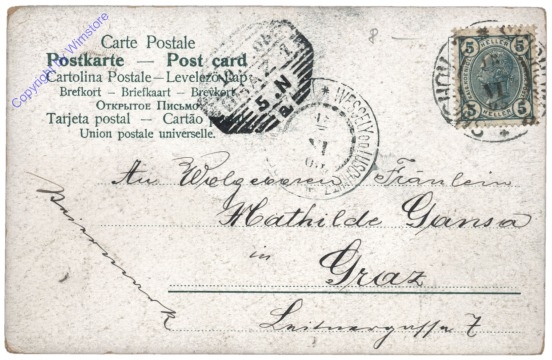 Copyright by Wimstore
Carte Postale
Postkarte — Post card
Cartolina Postale — Levelező Lap
Brefkort — Briefkaart — Brevkort
Открытое Письмо
Tarjeta postal — Cartão postal
Union postale universelle.
5 HELLER 5
5 5
GRAZ 1
5. N
8
An Wolgeboren Fräulein
Mathilde Gansa
in
Graz
Leitnergasse 7